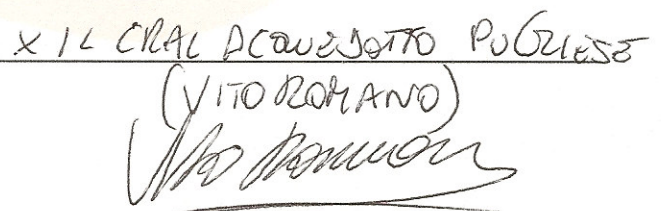 X IL CRAL ACQUEDOTTO PUGLIESE
(VITO ROMANO)
Vito Romano